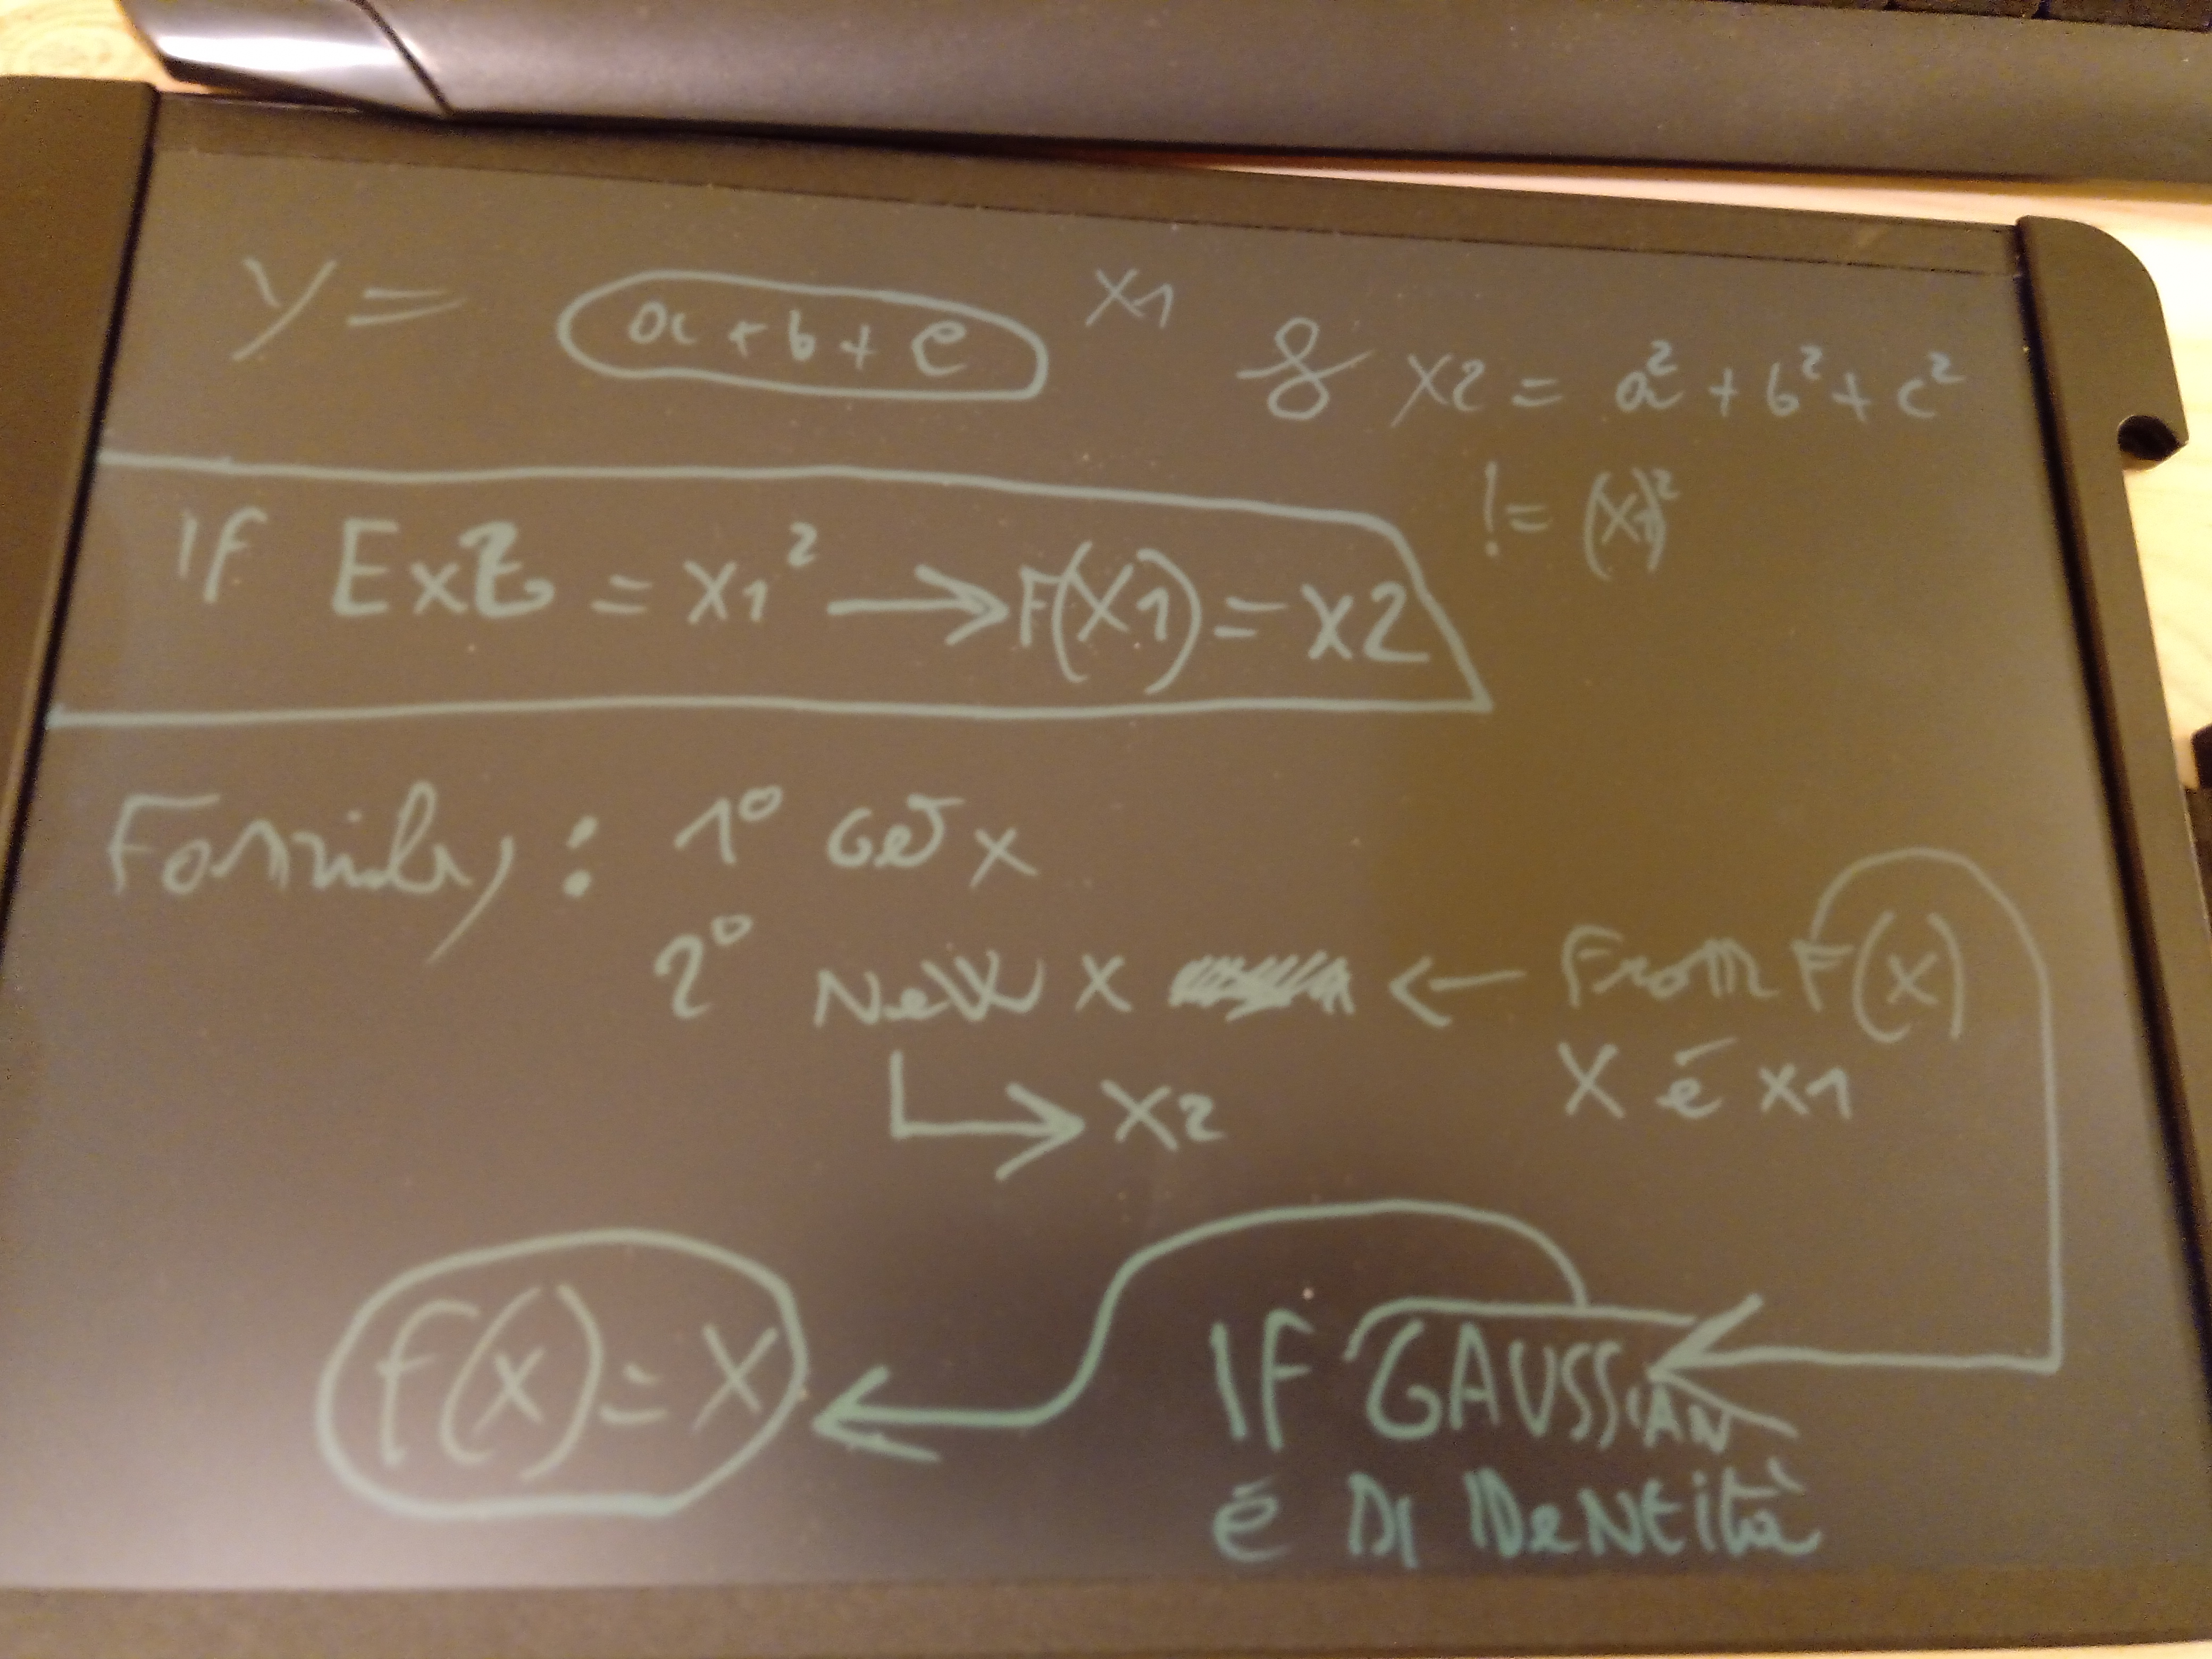 y = a + b + c x1
& x2 = a² + b² + c²
!= (x1)²
IF Ext = x1² → F(X1) = X2
Family: 1° Get x
2° New x ← From F(x)
X é x1
↳ X2
f(x) = X
IF GAUSSIAN
é DI IDeNtità